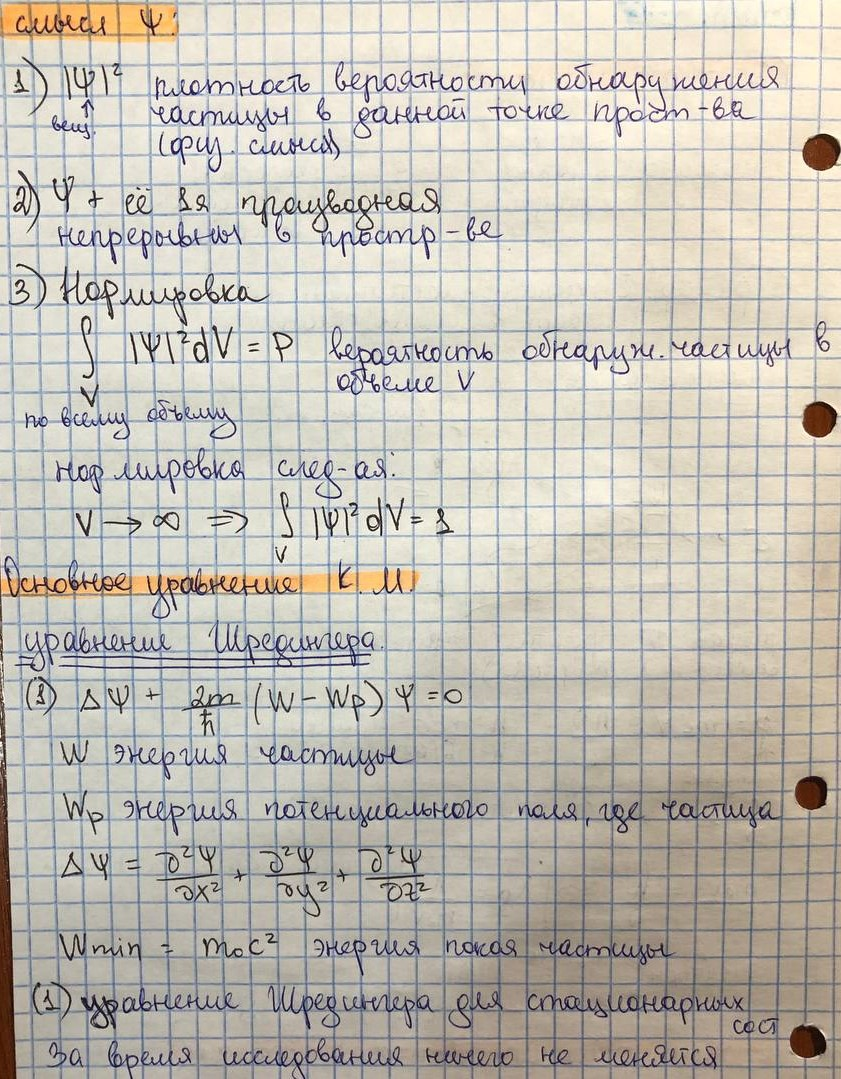 смысл Ψ:
1) |Ψ|² плотность вероятности обнаружения
вещ. ↑ частицы в данной точке прост-ва
(физ. смысл)
2) Ψ + её 1я производная
непрерывны в простр-ве
3) Нормировка
∫ |Ψ|² dV = P вероятность обнаруж. частицы в
V объеме V
по всему объему
нормировка след-ая:
V → ∞ ⇒ ∫ |Ψ|² dV = 1
V
Основное уравнение К.М.
уравнение Шредингера.
(1) ΔΨ + 2m/ħ (W - Wp) Ψ = 0
W энергия частицы
Wp энергия потенциального поля, где частица
ΔΨ = ∂²Ψ/∂x² + ∂²Ψ/∂y² + ∂²Ψ/∂z²
Wmin = m₀c² энергия покоя частицы
(1) уравнение Шредингера для стационарных
сост
За время исследования ничего не меняется